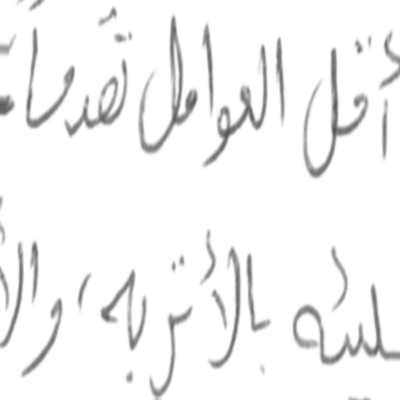 أقل العوامل تقدما
بالأتربه، والأ